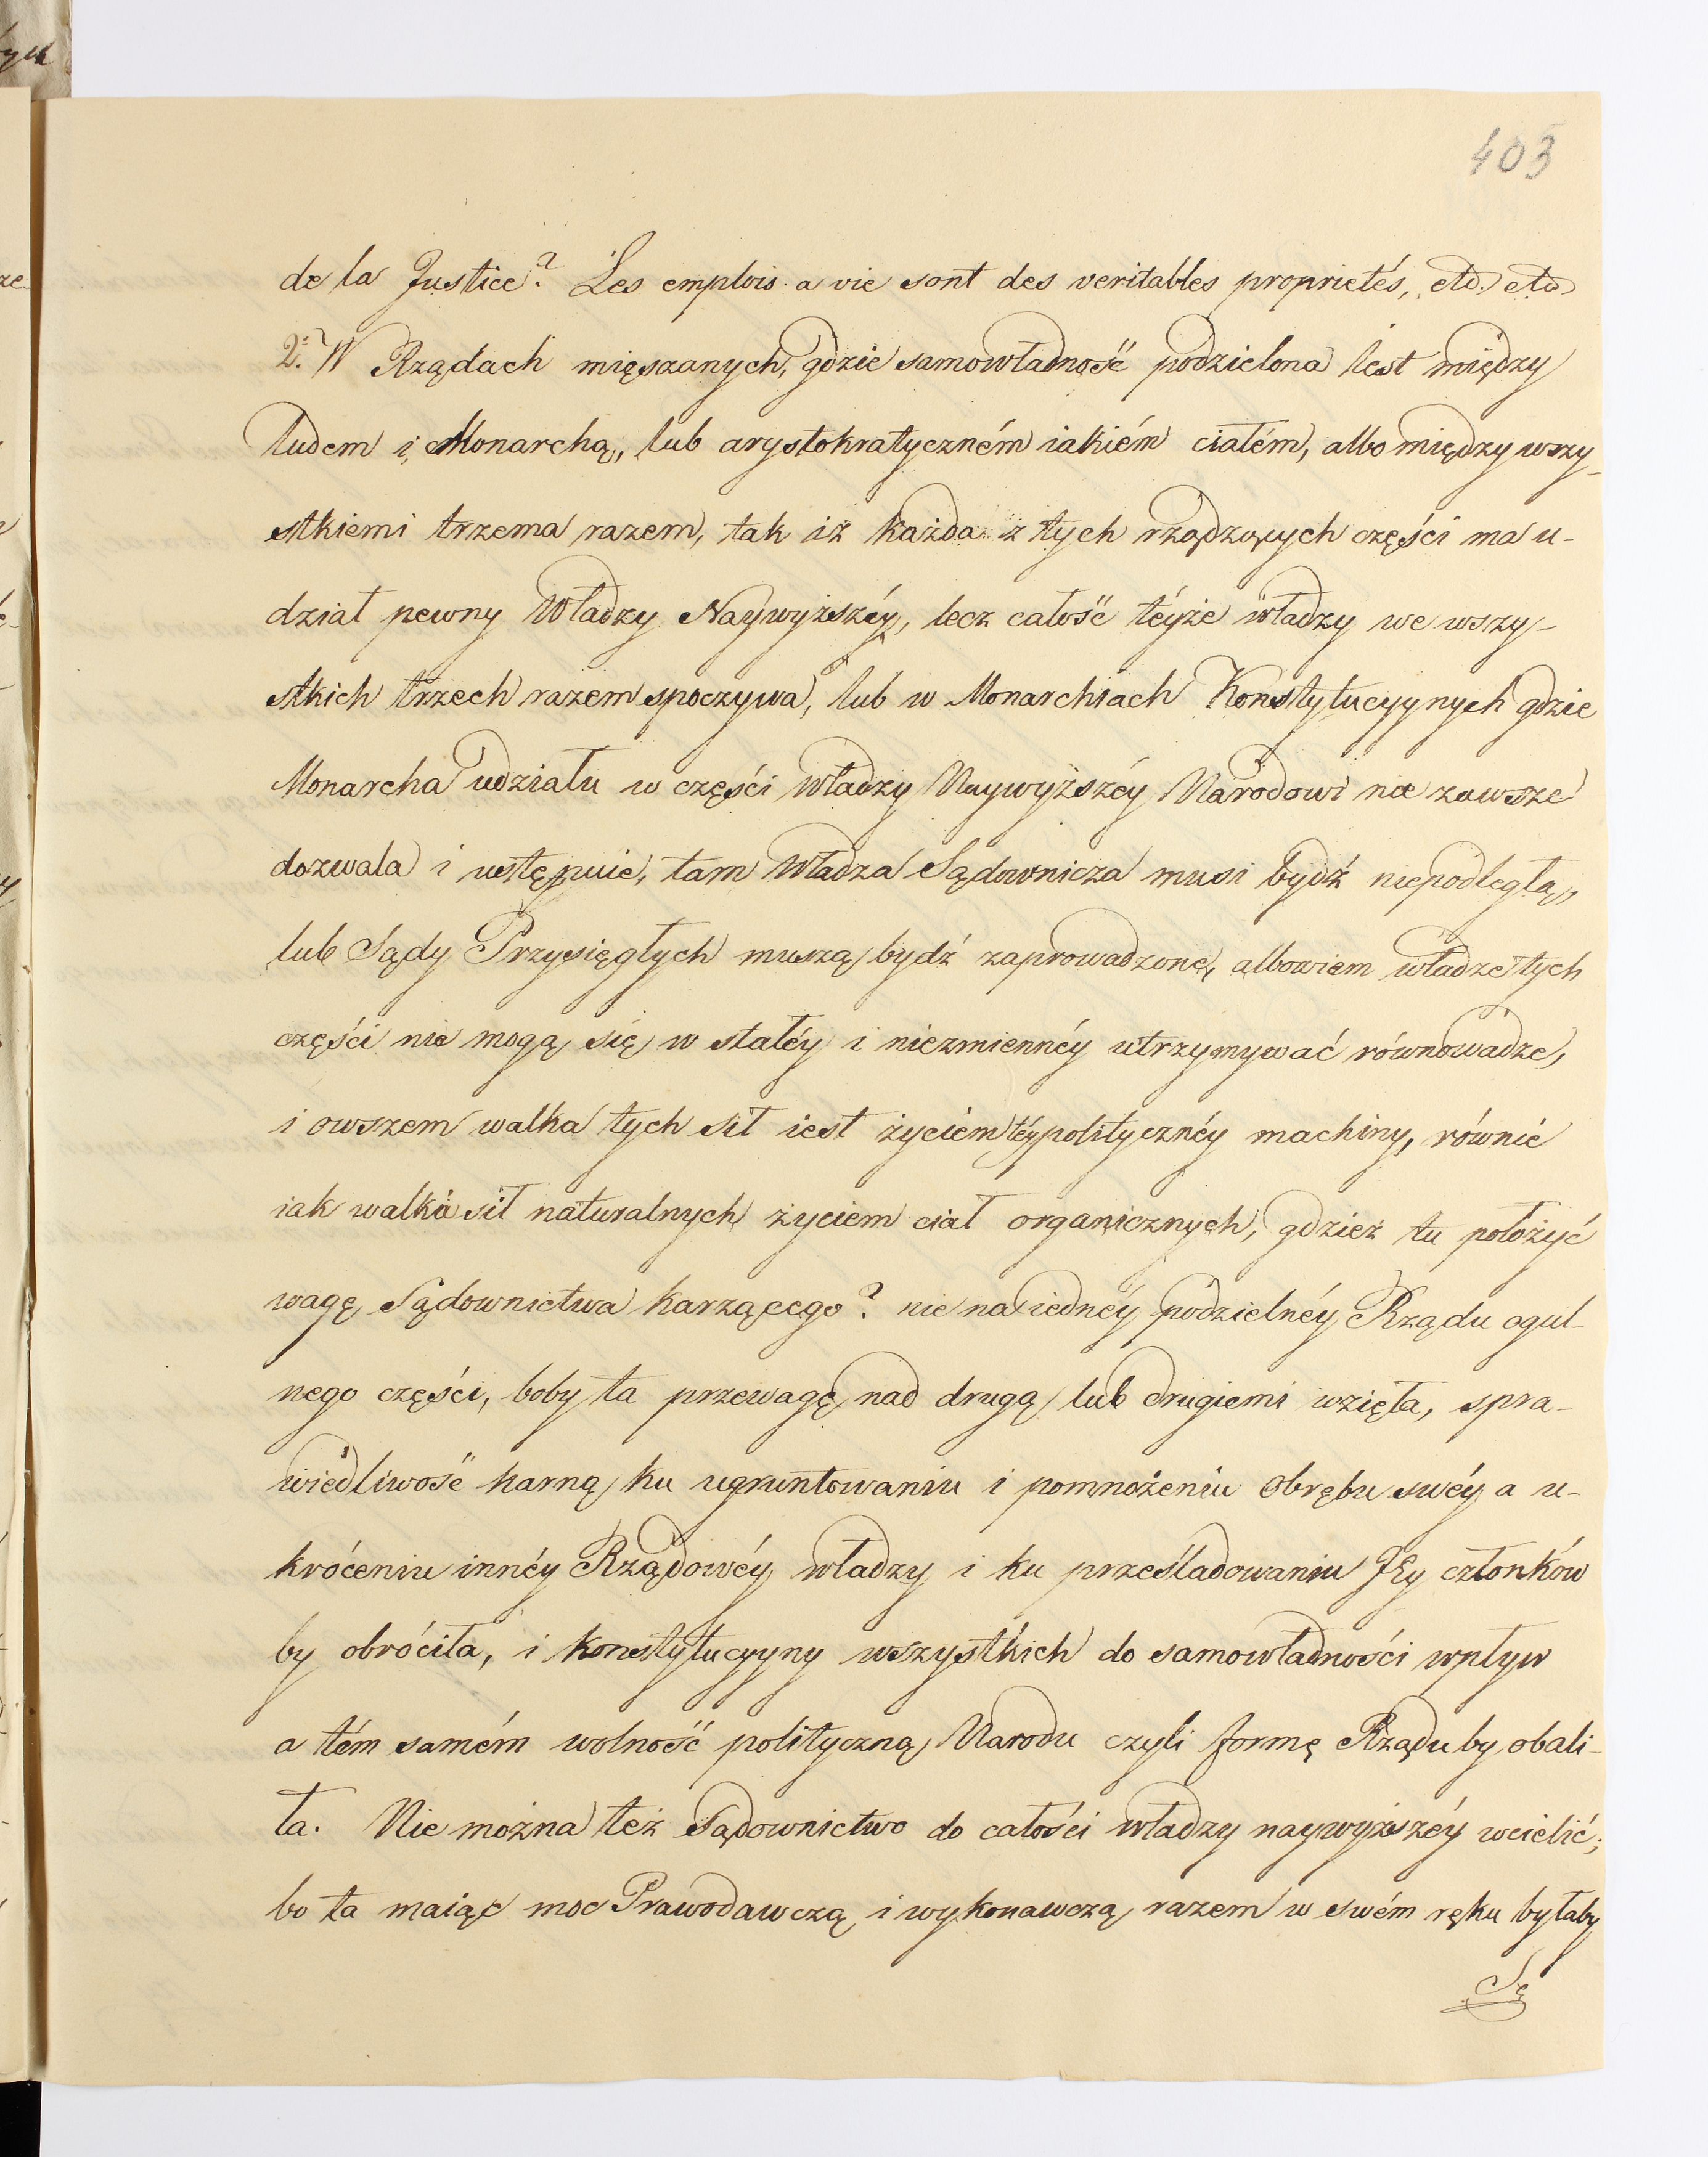 403
de la Justice? Les emplois a vie sont des veritables proprietés, etc. etc
2. W Rządach mięszanych, gdzie samowładność podzielona iest między
ludem i Monarchą, lub arystokratyczném iakiém ciałém, albo między wszy-
stkiemi trzema razem, tak iż każda z tych rządzących części ma u-
dział pewny Władzy Naywyższéy, lecz całość téyże władzy we wszy-
stkich trzech razem spoczywa, lub w Monarchiach Konstytucyynych gdzie
Monarcha udziału w części władzy Naywyższéy Narodowi na zawsze
dozwala i ustępuie, tam Władza Sądownicza musi bydź niepodległą,
lub Sądy Przysięgłych muszą bydź zaprowadzone, albowiem władze tych
części nie mogą się w stałéy i niezmiennéy utrzymywać równowadze,
i owszem walka tych sił iest życiem téy politycznéy machiny, równie
iak walka sił naturalnych życiem ciał organicznych, gdzież tu położyć
wagę Sądownictwa karzącego? nie na iednéy podzielnéy Rządu ogul-
nego części, boby ta przewagę nad drugą lub drugiemi wzięła, spra-
wiedliwość karną ku ugruntowaniu i pomnożeniu obrębu swéy a u-
króceniu innéy Rządowéy władzy i ku prześladowaniu JEy członków
by obróciła, i konstytucyyny wszystkich do samowładności wpływ
a tém samém wolność polityczną Narodu czyli formę Rządu by obali-
ła. Nie można też Sądownictwo do całości władzy naywyższéy wcielić;
bo ta maiąc moc Prawodawczą i wykonawczą razem w swém ręku byłaby
Sę